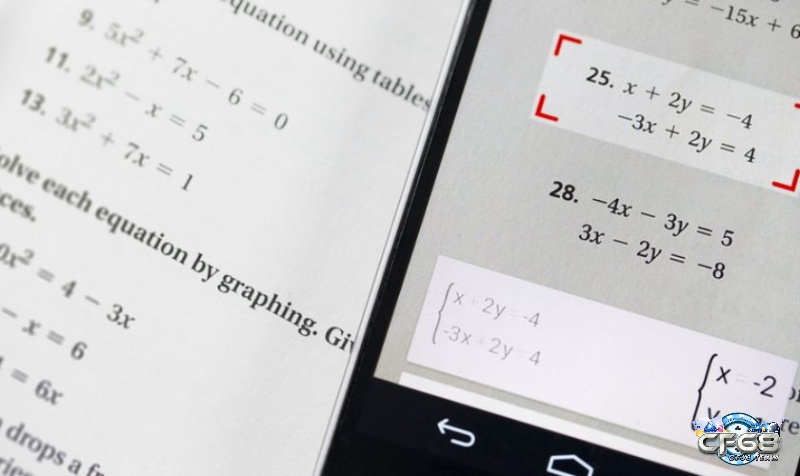 quation using tables
9. 5x² + 7x − 6 = 0
11. 2x² − x = 5
13. 3x² + 7x = 1
olve each equation by graphing.
ces.
x² = 4 − 3x
− x = 6
= 6x
drops a
= −15x + 6
25. x + 2y = −4
−3x + 2y = 4
28. −4x − 3y = 5
3x − 2y = −8
x + 2y = -4
-3x + 2y = 4
x = -2
CF68